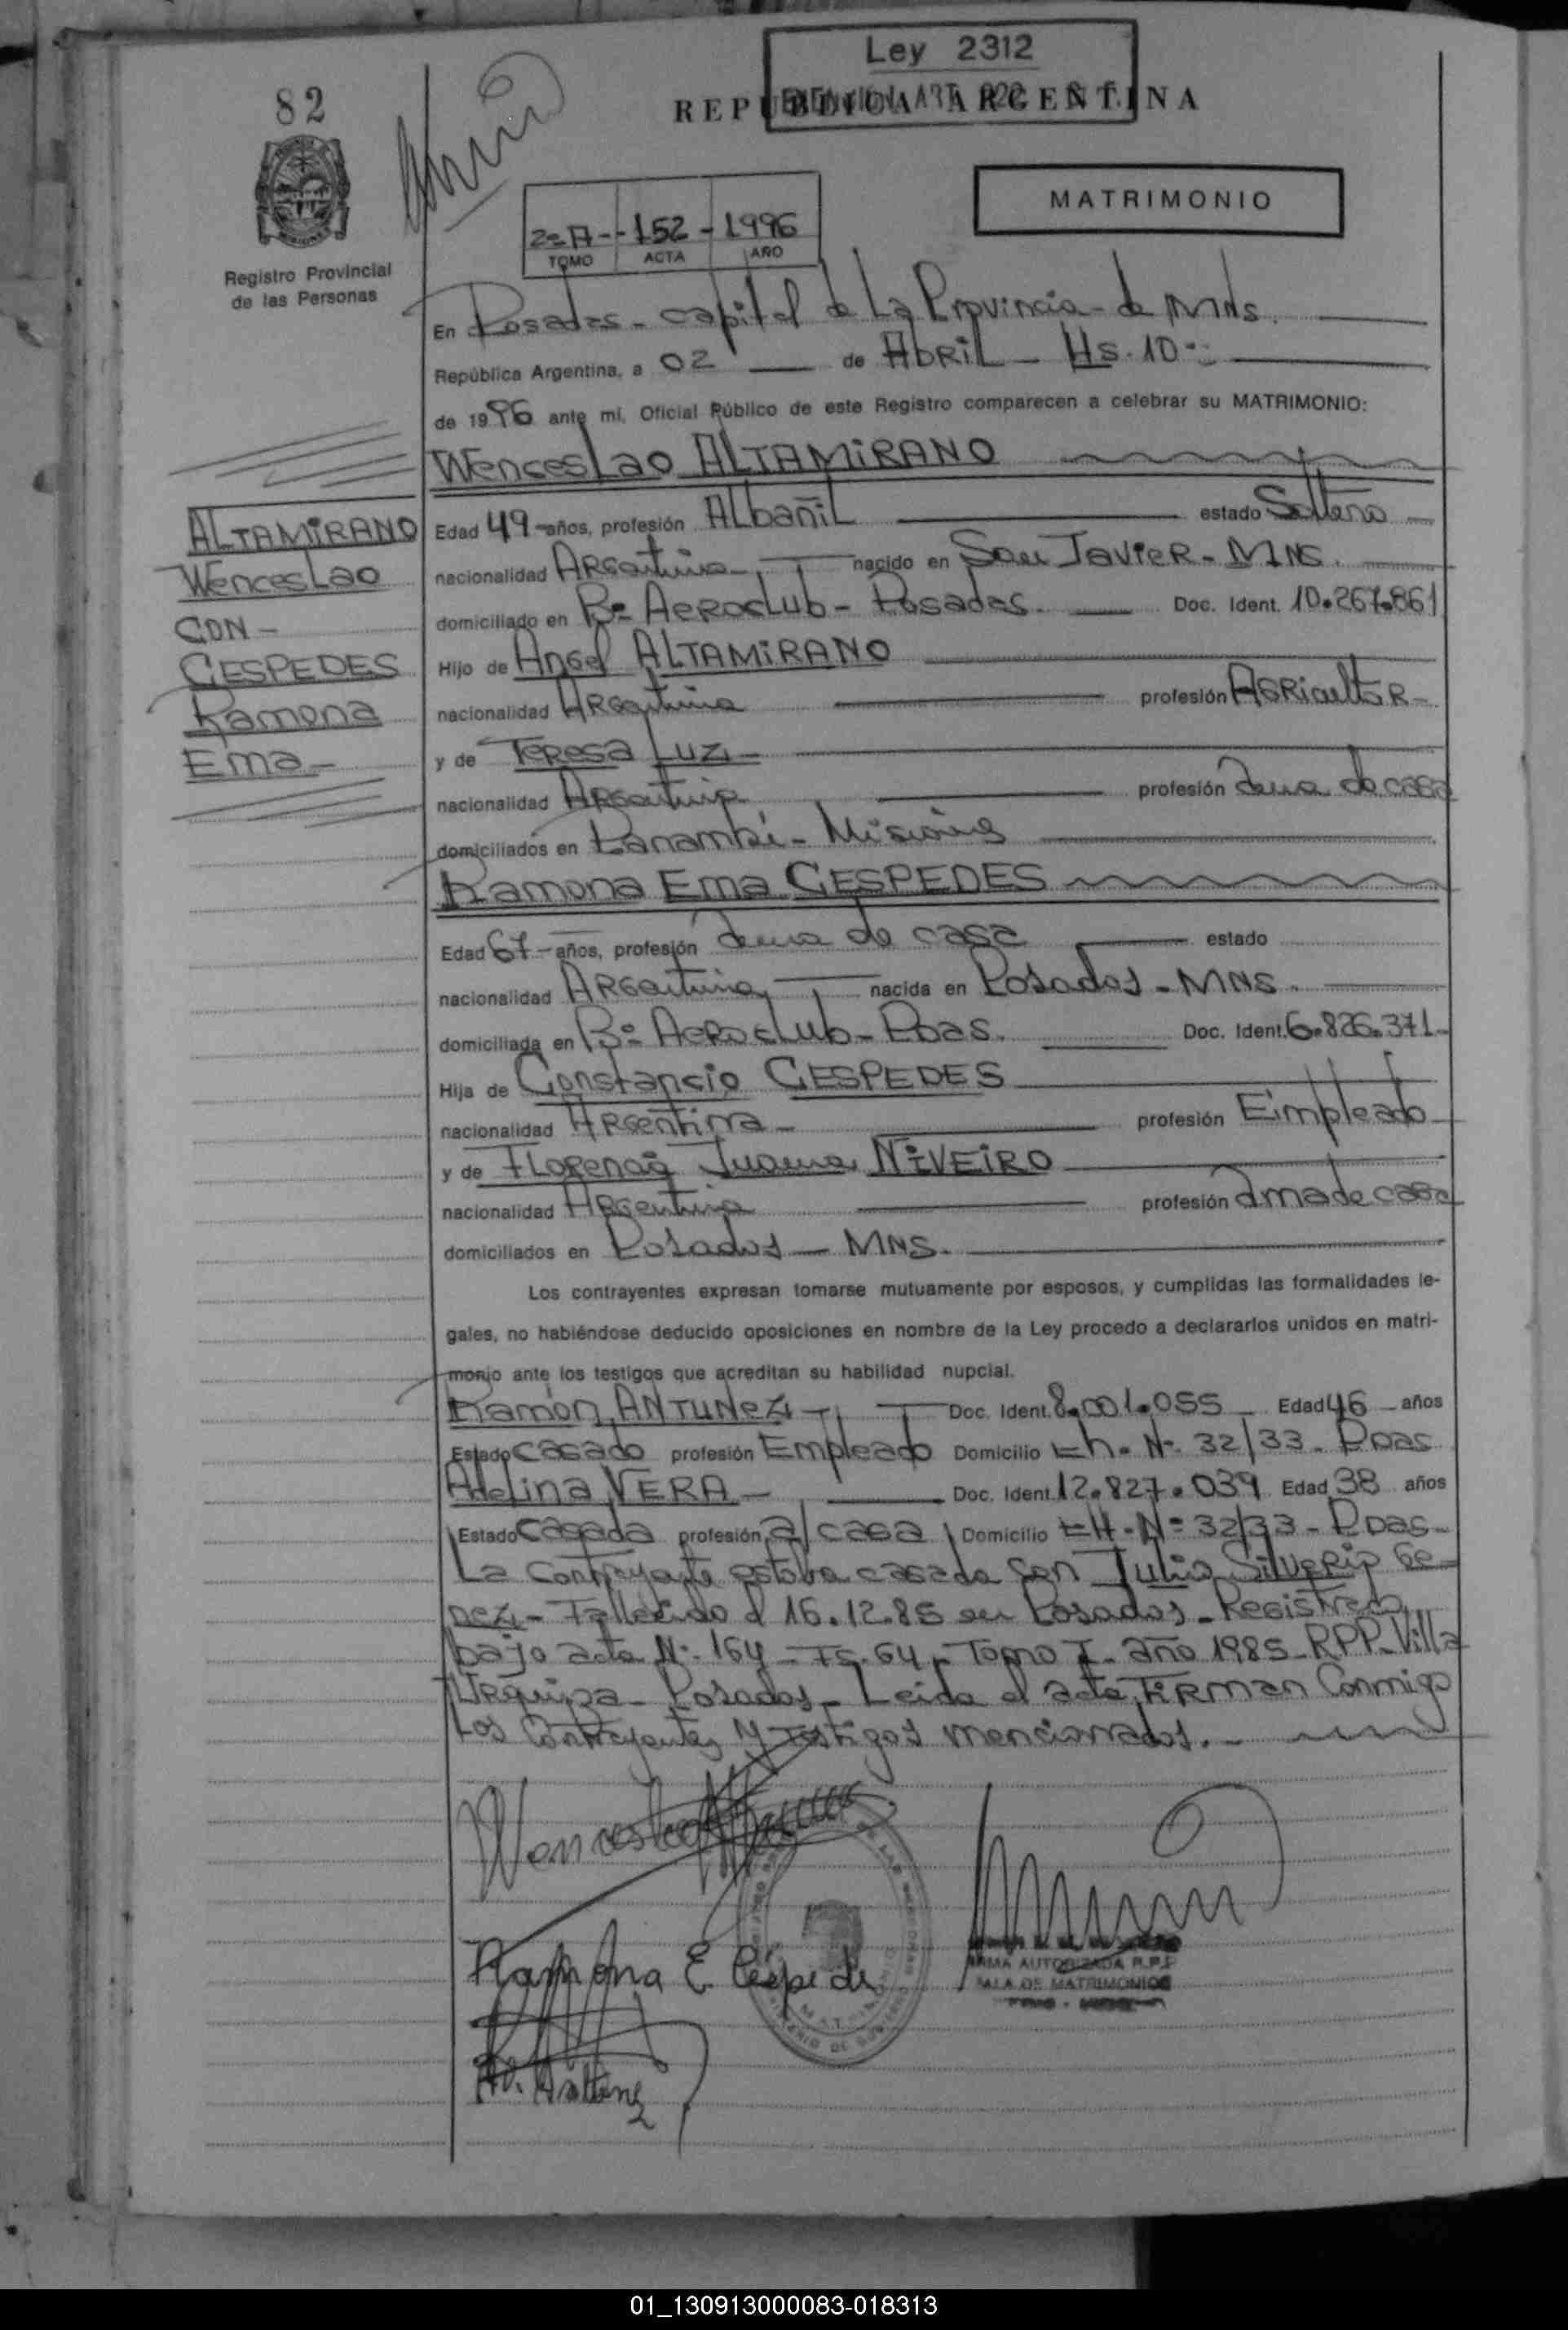 Ley 2312
82
REPUBLICA ARGENTINA
MATRIMONIO
2=A - 152 - 1996
TOMO ACTA AÑO
Registro Provincial
de las Personas
En Posadas - capital de La Provincia - de MNs.
República Argentina, a 02 de Abril - Hs. 10
de 1996 ante mí, Oficial Público de este Registro comparecen a celebrar su MATRIMONIO:
Wenceslao ALTAMIRANO
Edad 49 - años, profesión Albañil estado Soltero
nacionalidad Argentina nacido en San Javier - MNS.
domiciliado en Bº Aeroclub - Posadas. Doc. Ident. 10.267.861
Hijo de Angel ALTAMIRANO
nacionalidad Argentina profesión Agricultor -
y de Teresa Luz -
nacionalidad Argentina profesión ama de casa
domiciliados en Panambi - Misiones
ALTAMIRANO
Wenceslao
CON -
CESPEDES
Ramona
Ema -
Ramona Ema CESPEDES
Edad 67 - años, profesión ama de casa estado
nacionalidad Argentina nacida en Posadas - MNS.
domiciliada en Bº Aeroclub - Pdas. Doc. Ident. 6.826.371 -
Hija de Constancio CESPEDES
nacionalidad Argentina - profesión Empleado
y de Florencia Juana NIVEIRO
nacionalidad Argentina profesión ama de casa
domiciliados en Posadas - MNS.
Los contrayentes expresan tomarse mutuamente por esposos, y cumplidas las formalidades le-
gales, no habiéndose deducido oposiciones en nombre de la Ley procedo a declararlos unidos en matri-
monio ante los testigos que acreditan su habilidad nupcial.
Ramon ANTUNEZ - Doc. Ident. 8.001.055 Edad 46 - años
Estado casado profesión Empleado Domicilio Ch. Nº 32/33 - Pdas
Adelina VERA - Doc. Ident. 12.827.039 Edad 38 años
Estado casada profesión a/casa Domicilio CH - Nº 32/33 - Pdas -
La Contrayente estaba casada con Julio Silverio Be-
nez - Fallecido el 16.12.85 en Posadas - Registrada
bajo acta Nº 164 - Fs. 64 - Tomo I - año 1985 - RPP - Villa
Urquiza - Posadas - Leida el acta, Firman Conmigo
Los Contrayentes y testigos mencionados. -
Wenceslao
Ramona E. Céspede
FIRMA AUTORIZADA R.P.P
SALA DE MATRIMONIOS
01_130913000083-018313